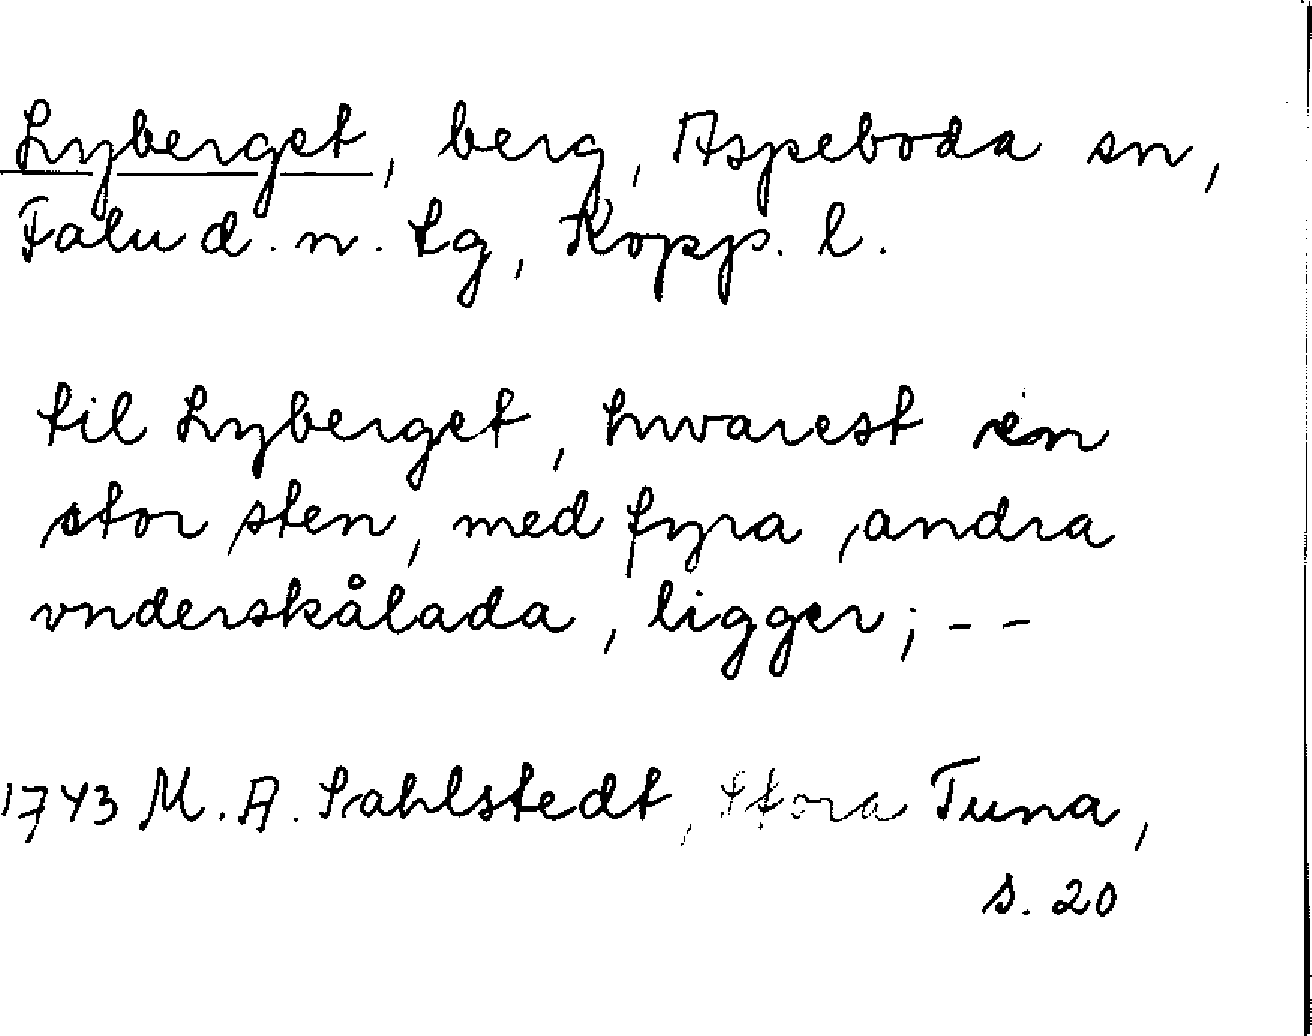 Lyberget, berg, Aspeboda sn,
Falu d. n. tg, Kopp. l.
til Lyberget, hwarest en
stor sten, med fyra andra
vnderskålada, ligger; - -
1743 M. A. Sahlstedt, Stora Tuna,
s. 20